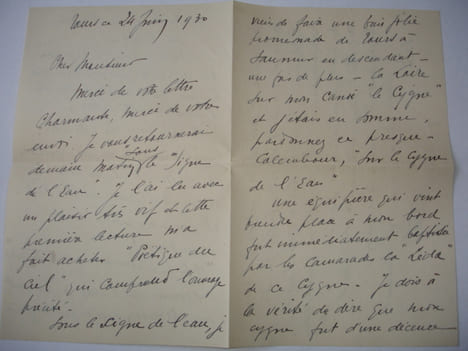 Tours ce 24 Juin 1930
Cher Monsieur
Merci de votre lettre
charmante, merci de votre
envoi. Je vous retournerai
demain matin le "Sous
le Signe
de l'Eau". Je l'ai lu avec
un plaisir très vif et cette
première lecture m'a
fait acheter "Poétique du
Ciel" qui comprend l'ouvrage
précité.
Sous le Signe de l'eau, je
viens de faire une très jolie
promenade de Tours à
Saumur en descendant –
une fois de plus – la Loire
sur mon canoë "le Cygne"
et j'étais en somme,
pardonnez ce presque-
calembour, "sur le cygne
de l'Eau"
une équipière qui vint
prendre place à mon bord
fut immédiatement baptisée
par les camarades la "Léda"
de ce Cygne. Je dois à
la vérité de dire que mon
cygne fut d'une décence